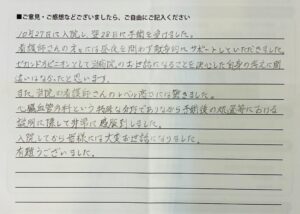 ■ご意見・ご感想などございましたら、ご自由にご記入ください
10月27日に入院し、翌28日に手術を受けました。
看護師さんの方々には昼夜を問わず献身的にサポートしていただきました。
セカンドオピニオンとして当病院のお世話になることを決心した自身の考えに間
違いはなかったと思います。
また、当院の看護師さんのレベル高さには驚きました。
心臓血管外科という特殊な分野でありながら手術後の
説明に際して非常に感服しました。
入院してから皆様には大変お世話になりました。
有難うございました。